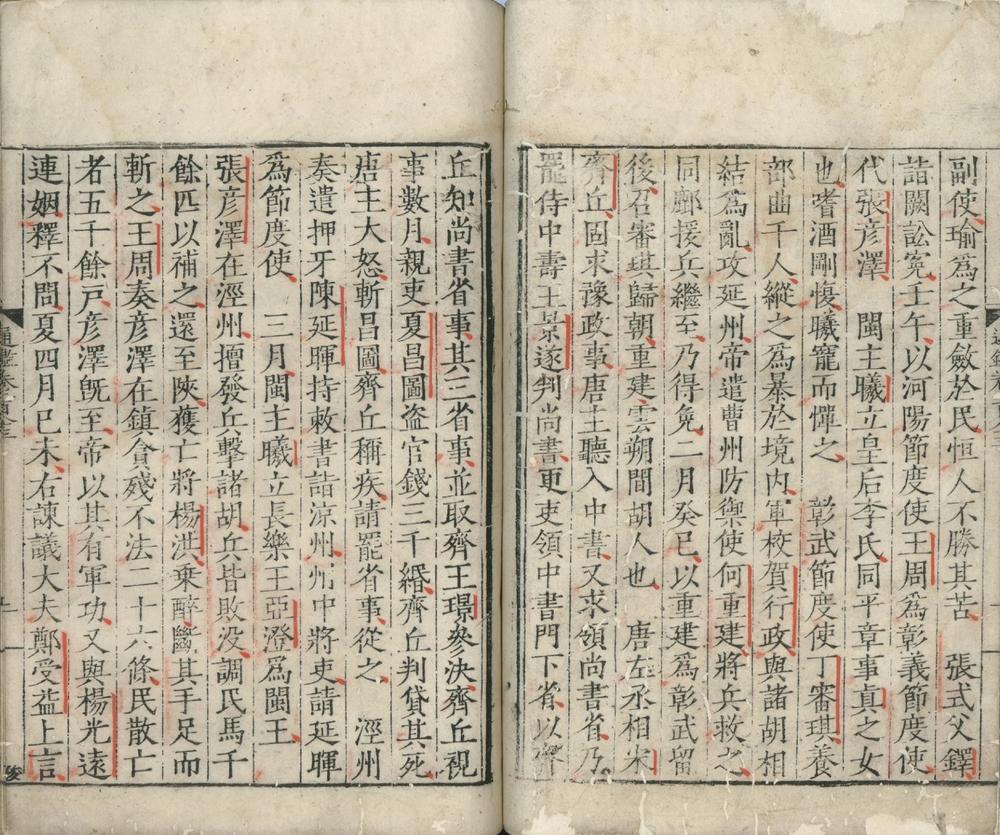 副使瑜爲之重斂於民恒人不勝其苦　張式父鐸
詣闕訟冤壬午以河陽節度使王周爲彰義節度使
代張彦澤　閩主曦立皇后李氏同平章事真之女
也嗜酒剛愎曦寵而憚之　彰武節度使丁審琪養
部曲千人縱之爲暴於境内軍校賀行政與諸胡相
結爲亂攻延州帝遣曹州防禦使何重建將兵救之
同鄜援兵繼至乃得免二月癸巳以重建爲彰武留
後召審琪歸朝重建雲朔間胡人也　唐左丞相宋
齊丘固求豫政事唐主聽入中書又求領尚書省乃
罷侍中壽王景遂判尚書更吏領中書門下省以齊
丘知尚書省事其三省事並取齊王璟參決齊丘視
事數月親吏夏昌圖盗官錢三千緡齊丘判貸其死
唐主大怒斬昌圖齊丘稱疾請罷省事從之　涇州
奏遣押牙陳延暉持敕書詣涼州州中將吏請延暉
爲節度使　三月閩主曦立長樂王亞澄爲閩王
張彦澤在涇州擅發兵擊諸胡兵皆敗没調民馬千
餘匹以補之還至陝獲亡將楊洪乘醉斷其手足而
斬之王周奏彦澤在鎮貪殘不法二十六條民散亡
者五千餘戶彦澤旣至帝以其有軍功又與楊光遠
連姻釋不問夏四月己未右諫議大夫鄭受益上言